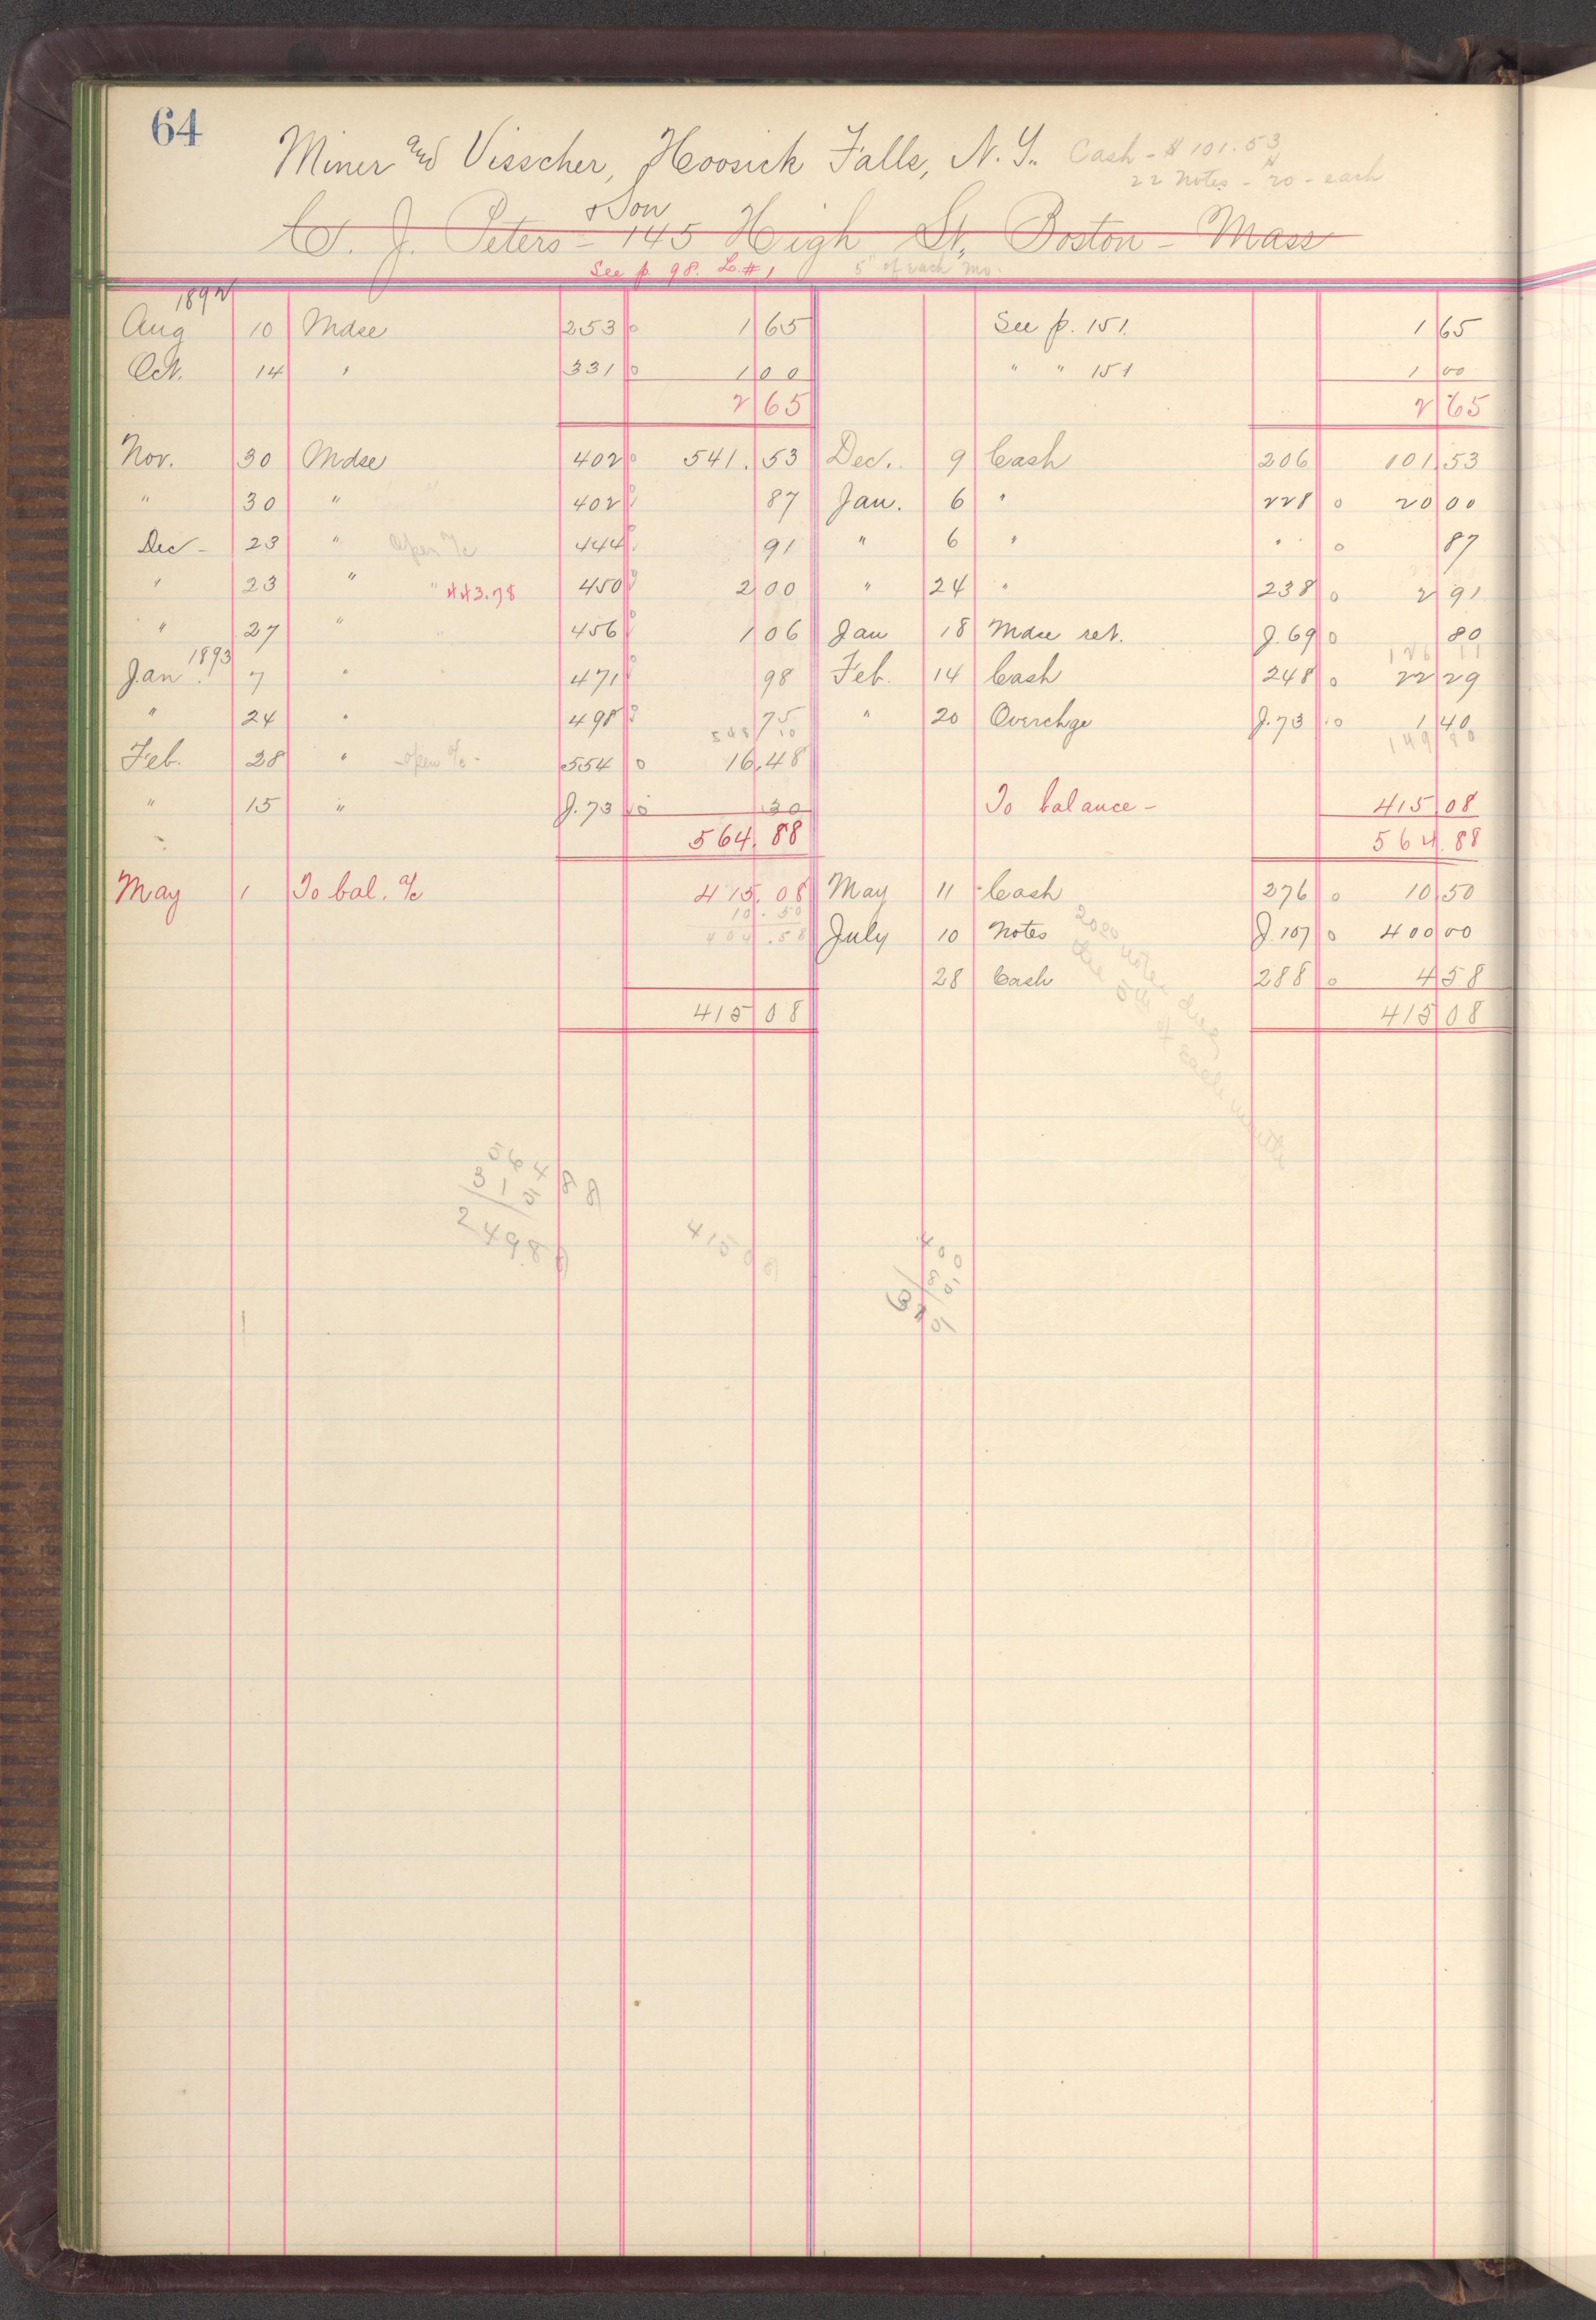 64
Miner and Visscher, Hoosick Falls, N. Y. Cash - $ 101.53
22 Notes - $20 - each
C. J. Peters & Son - 145 High St, Boston - Mass
See p. 98. L. # 1 5" of each mo.
1892
Aug 10 Mdse 253 0 1 65 See p. 151. 1 65
Oct. 14 " 331 0 1 00 " " 151 1 00
2 65 2 65
Nov. 30 Mdse 402 0 541. 53 Dec. 9 Cash 206 101 53
" 30 " 402 0 87 Jan. 6 " 228 0 20 00
Dec - 23 " Open a/c 444 0 91 " 6 " " 0 87
" 23 " " 443.78 450 0 2 00 " 24 " 238 0 2 91
" 27 " 456 0 1 06 Jan 18 Mdse ret. J. 69 0 80
1893 126 11
Jan. 7 " 471 0 98 Feb. 14 Cash 248 0 22 29
" 24 " 498 0 75 " 20 Overchge J. 73 0 1 40
548 10 149 80
Feb. 28 " - open a/c - 554 0 16.48
" 15 " J. 73 0 30 To balance - 415 08
564. 88 564. 88
May 1 To bal. a/c 415. 08 May 11 Cash 276 0 10 50
10. 50
404. 58 July 10 Notes J. 107 0 400 00
28 Cash 288 0 4 58
415 08 415 08
20 00 notes due
the 5th of each month
564 88
315
249.88
415 08
400
85
315